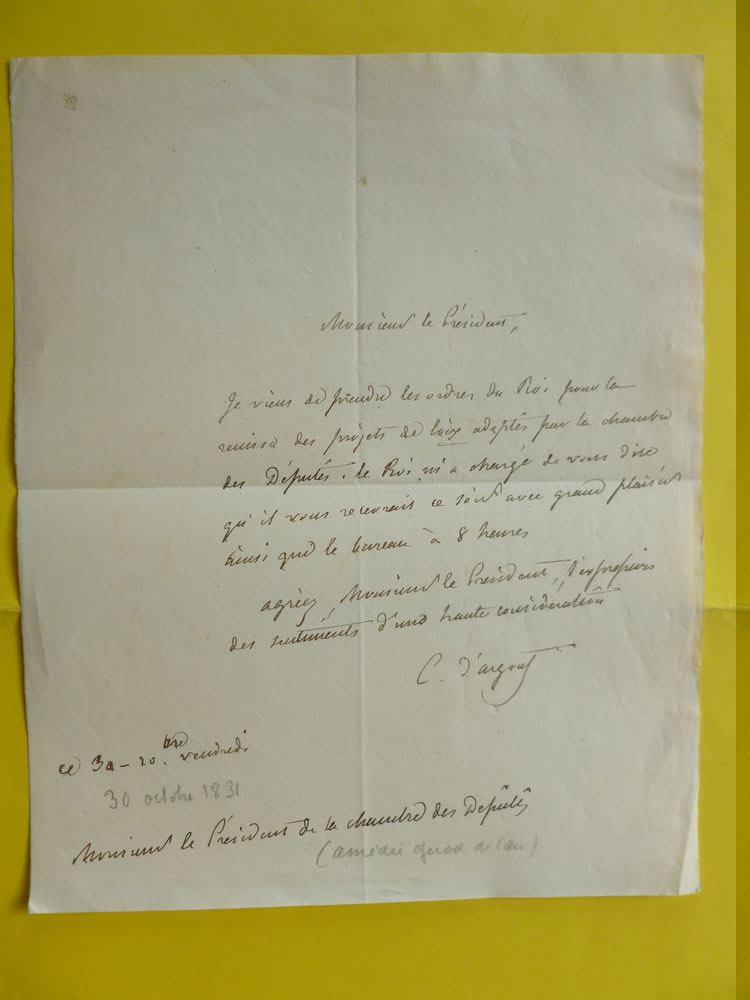 Monsieur le Président,
Je viens de prendre les ordres du Roi pour la
remise des projets de loix adoptés par la chambre
des Députés. le Roi m'a chargé de vous dire
qu'il vous recevrait ce soir avec grand plaisir
ainsi que le bureau à 8 heures
agréez, Monsieur le Président, l'expression
des sentiments d'une haute considération
C. d'argout
ce 30 - 10.bre vendredi
30 octobre 1831
Monsieur le Président de la chambre des Députés
(amédée girod de l'ain)